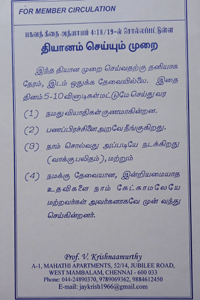 FOR MEMBER CIRCULATION
பகவத் கீதை அத்தியாயம் 4:18/19-ல் சொல்லப்பட்டுள்ள
தியானம் செய்யும் முறை
இந்த தியான முறை செய்வதற்கு தனியாக
நேரம், இடம் ஒதுக்க தேவையில்லை. இதை
தினம் 5-10 வினாடிகள் மட்டுமே செய்து வர
(1) நமது வியாதிகள் குணமாகின்றன.
(2) பணப்பிரச்சினை அறவே நீங்குகிறது.
(3) நாம் சொல்வது அப்படியே நடக்கிறது
(வாக்கு பலிதம்), மற்றும்
(4) நமக்கு தேவையான, இன்றியமையாத
உதவிகளை நாம் கேட்காமலேயே
மற்றவர்கள் அவர்களாகவே முன் வந்து
செய்கின்றனர்.
Prof. V. Krishnamurthy
A-1, MAHATHI APARTMENTS, 52/14, JUBILEE ROAD,
WEST MAMBALAM, CHENNAI - 600 033
Phone : 044-24890370, 9789069362, 9884612450
E-Mail : jaykrish1966@gmail.com